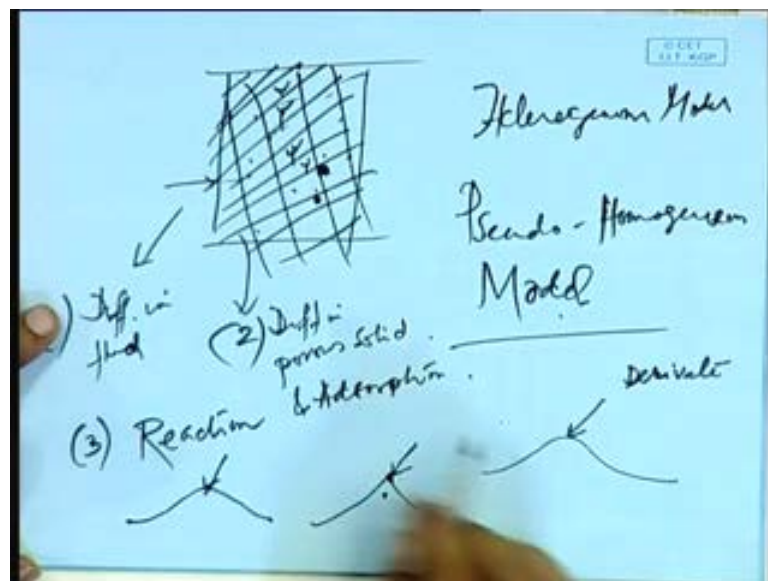 © CET
I.I.T. KGP
Heterogenous Model
Pseudo-Homogeneous
Model
) Diff. in
fluid
(2) Diff in
porous Solid.
(3) Reaction & Adsorption.
Derivate